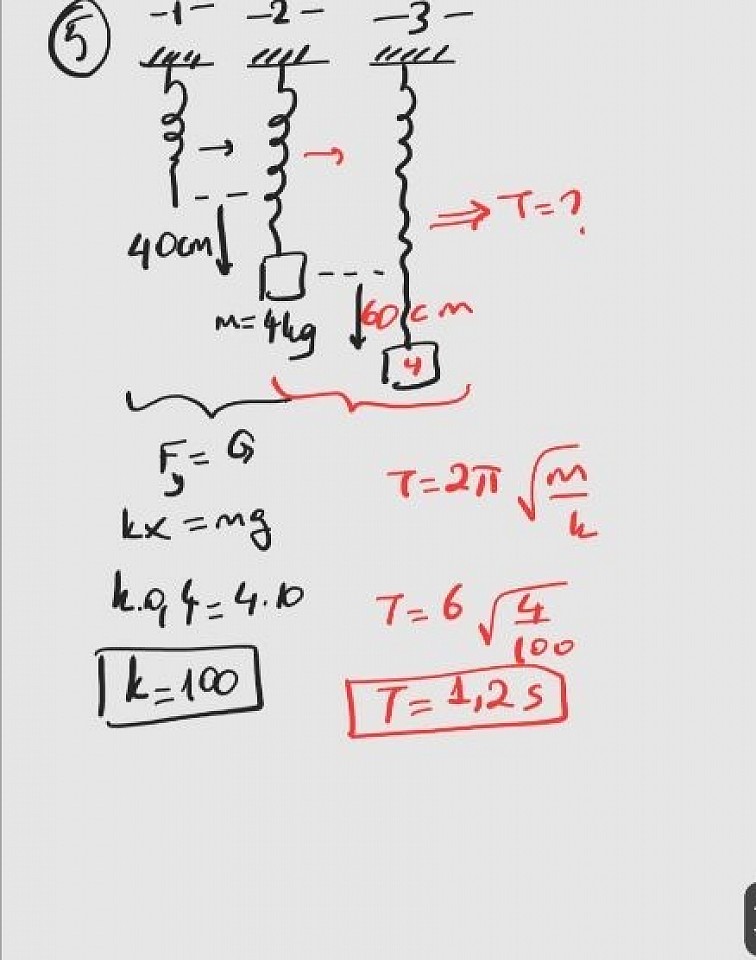 5
-1- -2- -3-
T=?
40cm
m=4kg
60cm
4
Fy = G
kx = mg
k.0,4=4.10
k=100
T=2π √m/k
T=6 √4/100
T=1,2s